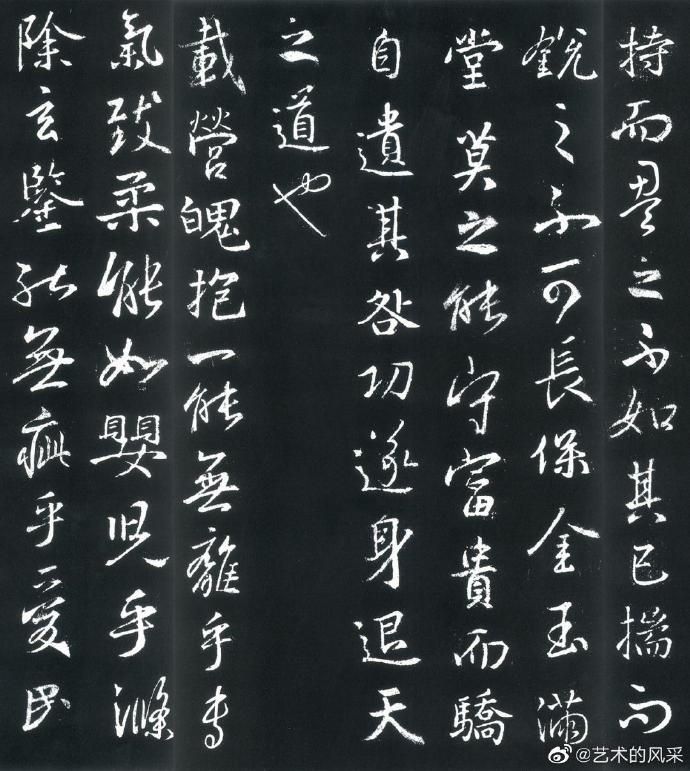 持而盈之不如其已揣而
銳之不可長保金玉滿
堂莫之能守富貴而驕
自遺其咎功遂身退天
之道也
載營魄抱一能無離乎專
氣致柔能如嬰兒乎滌
除玄鑒能無疵乎愛民
@艺术的风采